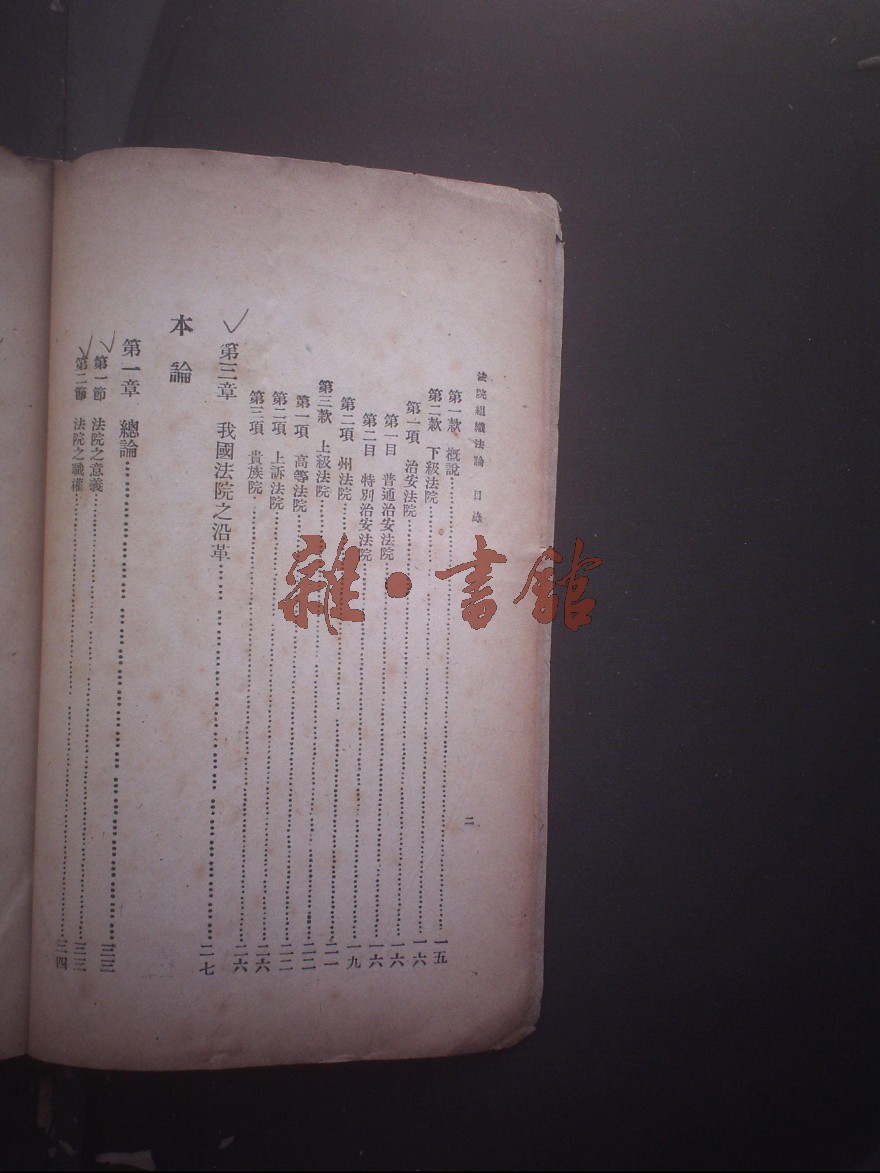 法院組織法論 目錄 二
第一款 概說……一五
第二款 下級法院……一六
第一項 治安法院……一六
第一目 普通治安法院……一六
第二目 特別治安法院……一九
第二項 州法院……二一
第三款 上級法院……二二
第一項 高等法院……二二
第二項 上訴法院……二六
第三項 貴族院……二六
第三章 我國法院之沿革……二七
本論
第一章 總論……三三
第一節 法院之意義……三三
第二節 法院之職權……三四
雜·書館